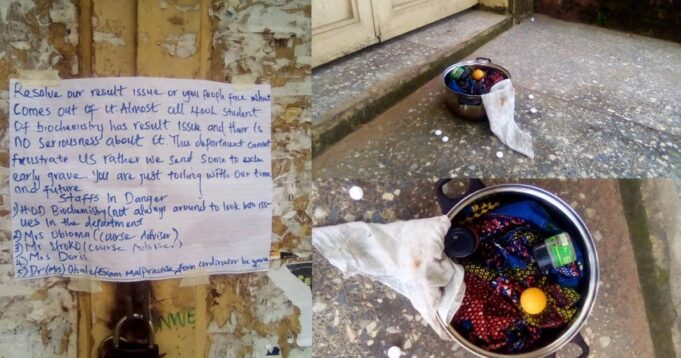 Resolve our result issue or you people face what
Comes out of it Almost all 400L student
Of biochemistry has result issue and their is
no seriousness about it This department cannot
frustrate us rather we send some to
early grave you are just toiling with our time
and future
Staffs In Danger
1) H.O.D Biochemistry (not always around to look into iss-
ues in the department
2) Mrs Obioma (Course Adviser)
3) Mr Uroko (Course Adviser)
4) Mrs Doris
5) Dr (Mrs) Exam Malpractice form cordinator be
NNIE